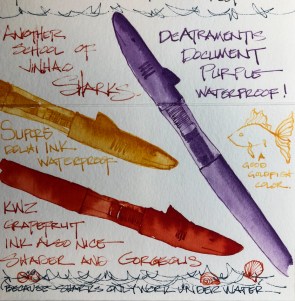 ANOTHER
SCHOOL OF
JINHAO
SHARKS.
DEATRAMENTS
DOCUMENT
PURPLE
WATERPROOF!
SUPER5
DELHI INK
WATERPROOF
GOOD
GOLDFISH
COLOR
KWZ
GRAPEFRUIT
INK ALSO NICE
SHADER AND GORGEOUS
BECAUSE SHARKS ONLY WORK UNDER WATER